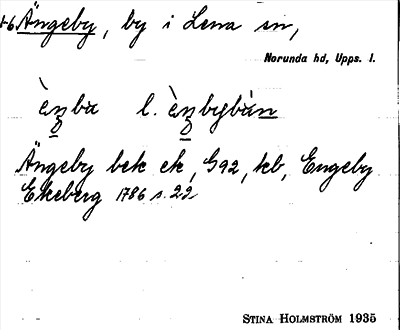 Ängeby, by i Lena sn,
Norunda hd, Upps. l.
l.
Ängeby bek ek, G92, kb, Engeby
Ekeberg 1786 s. 22
STINA HOLMSTRÖM 1935